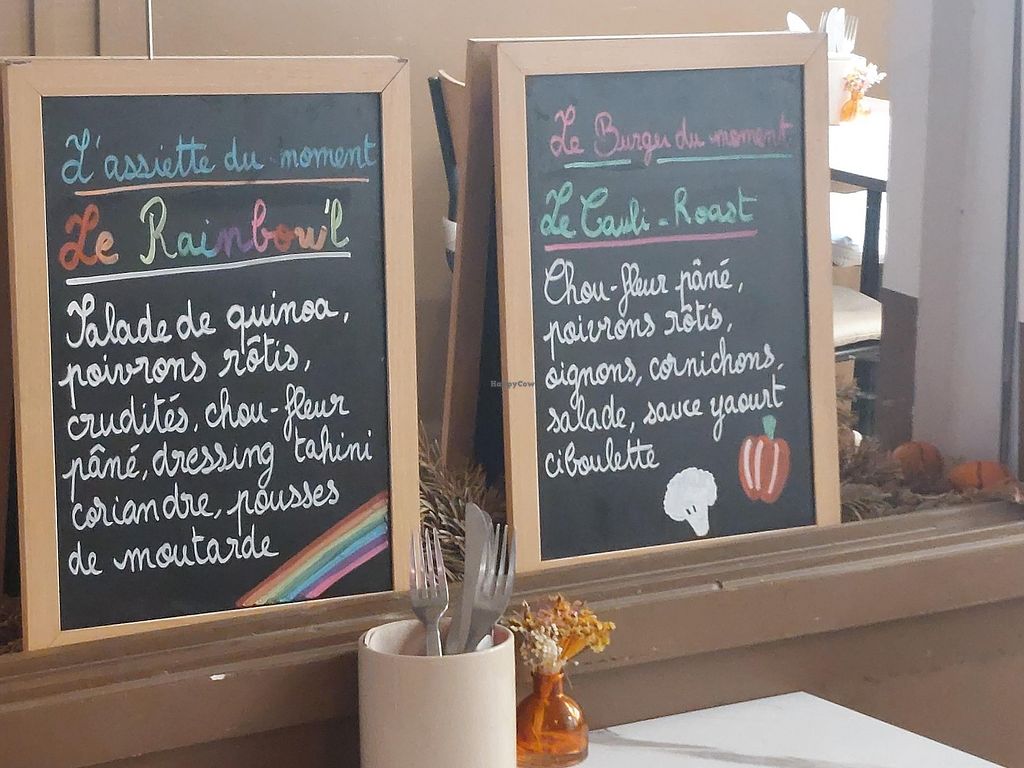 L'assiette du moment
Le Rainbow'l
Salade de quinoa,
poivrons rôtis,
crudités, chou-fleur
pâné, dressing tahini
coriandre, pousses
de moutarde
Le Burger du moment
Le Cauli-Roast
Chou-fleur pâné,
poivrons rôtis,
oignons, cornichons,
salade, sauce yaourt
ciboulette
HappyCow